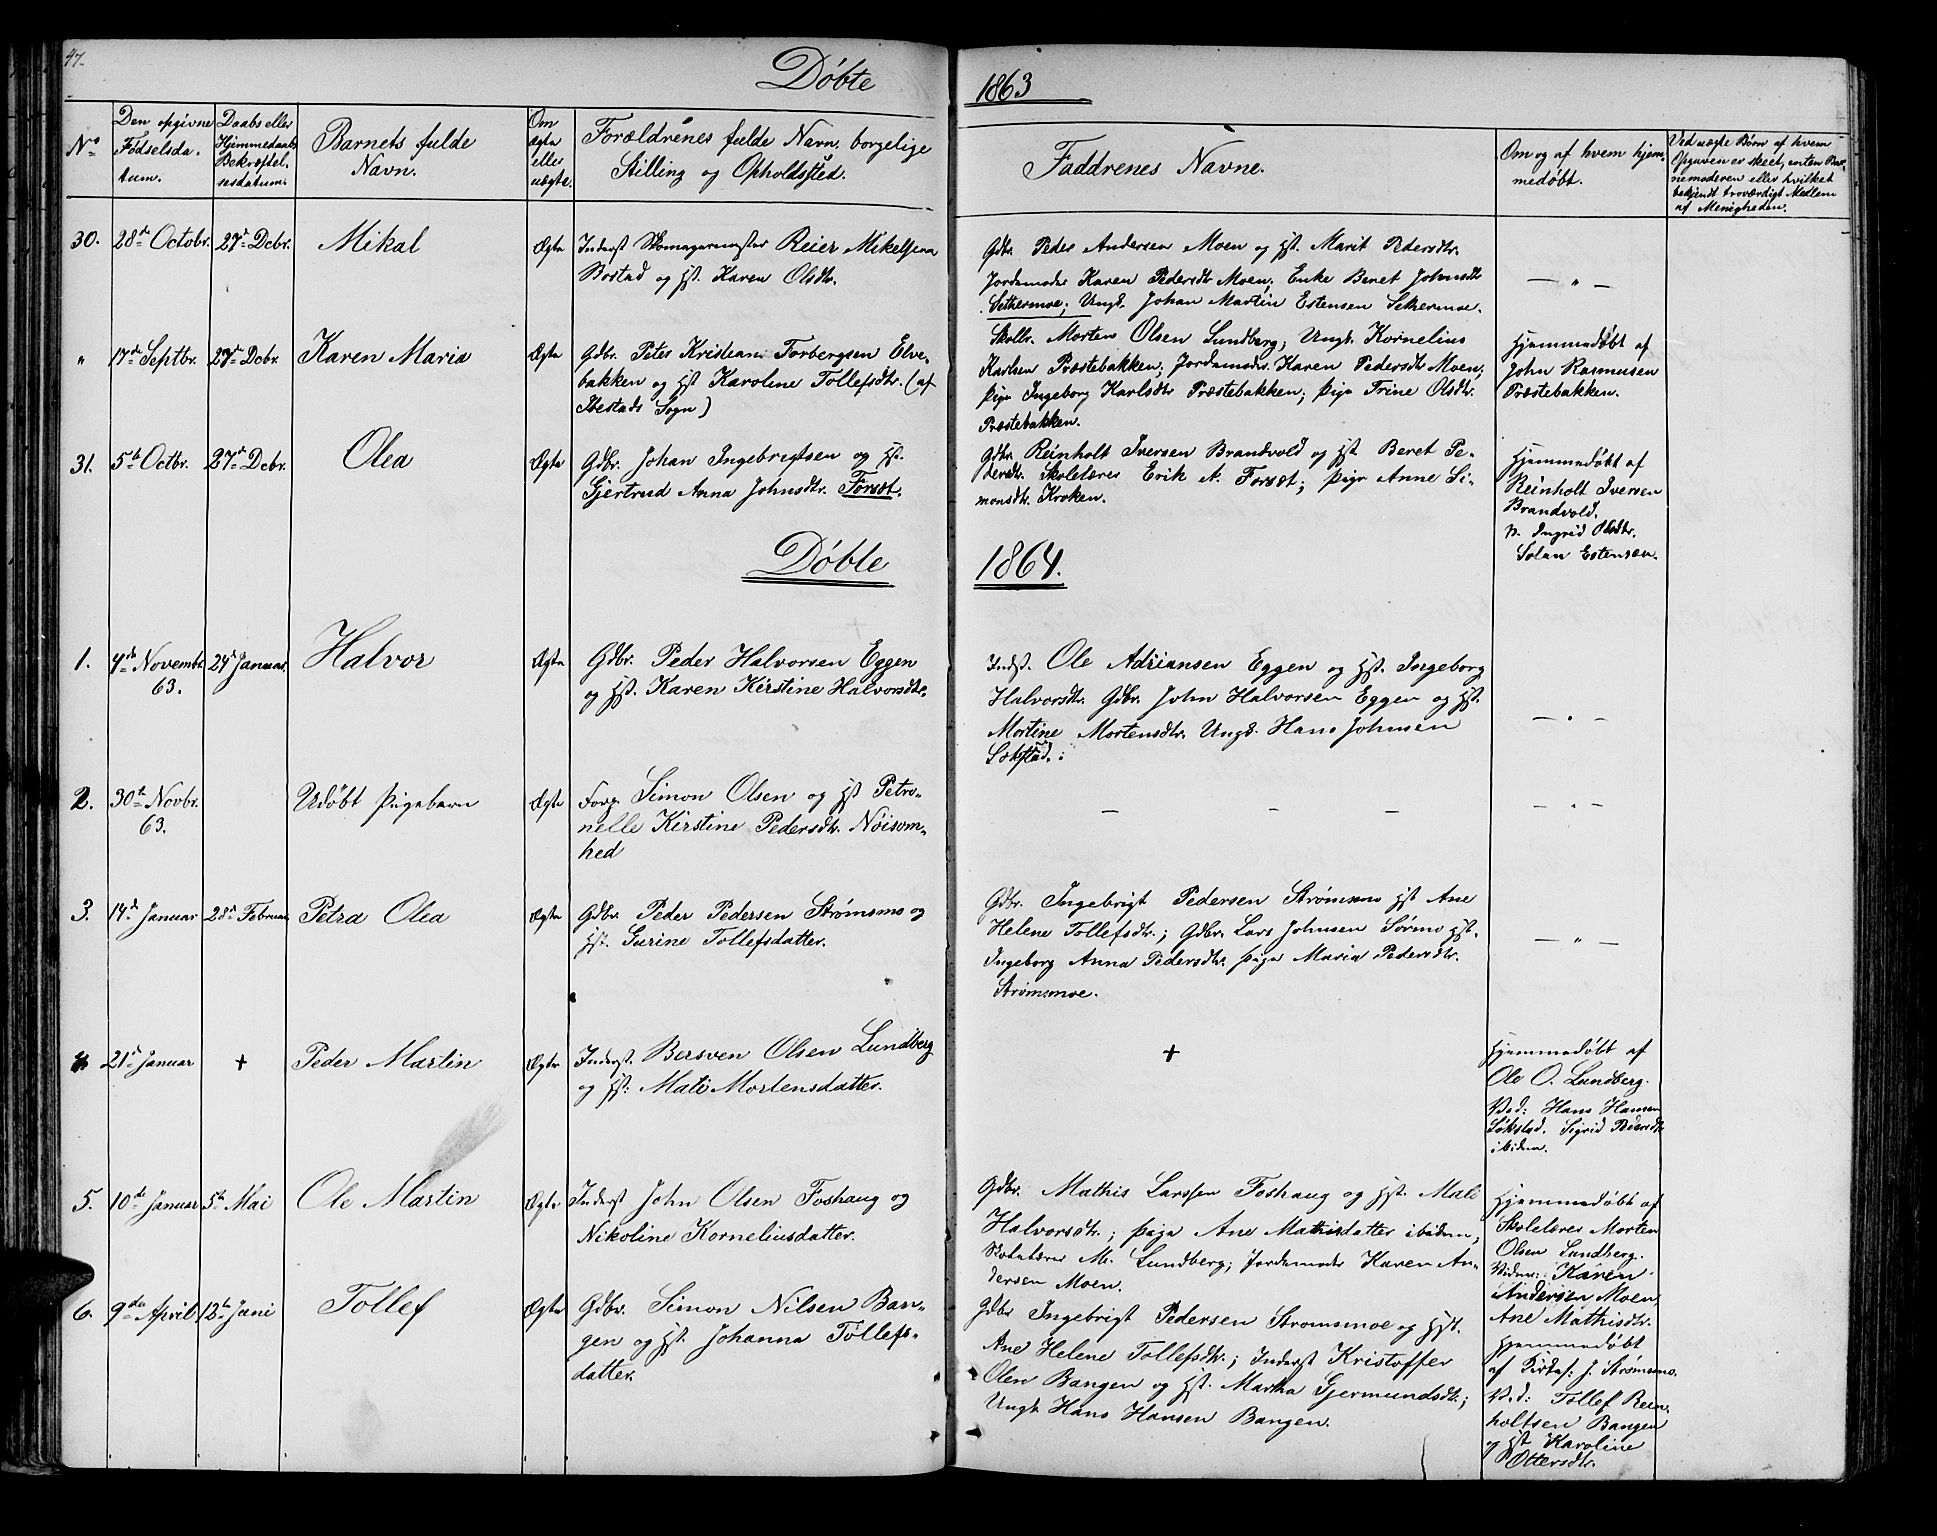 47.
Døbte
1863
No
Den opgivne
Fødselsda-
tum.
Daabs eller
Hjemmedaabs
Bekræftel-
sesdatum.
Barnets fulde
Navn.
Om
ægte
eller
uægte.
Forældrenes fulde Navn, borgelige
Stilling og Opholdssted.
Faddrenes Navne.
Om og af hvem hjem-
medøbt.
Ved uægte Børn af hvem
Opgaven er skeet, enten Bar-
nemoderen eller hvilket
bekjendt troværdigt Medlem
af Menigheden.
30. 28de Octobr. 27de Dcbr. Mikal Ægte
Inderst Skomagermester Reier Mikelsen
Bostad og Hst. Karen Olsdtr.
Gdbr. Peder Andersen Moen og Hst. Marit Pedersdtr.
Jordemoder Karen Pedersdtr Moen; Enke Beret Johnsdtr
Sethermoe; Ungk. Johan Martin Estensen Sethermoe.
— " —
" 17de Septbr. 27de Dcbr. Karen Maria Ægte
Gdbr. Peter Kristian Torbergsen Elve-
bakken og Hst Karoline Tollefsdtr. (af
Ibestads Sogn)
Skollr. Morten Olsen Lundberg; Ungk. Kornelius
Karlsen Præstebakken; Jordemoder Karen Pedersdtr Moen;
Pige Ingeborg Karlsdtr Præstebakken; Pige Trine Olsdtr.
Præstebakken.
Hjemmedøbt af
John Rasmusen
Præstebakken.
31. 5te Octbr. 27de Dcbr. Olea Ægte
Gdbr. Johan Ingebrigtsen og Hst.
Gjertrud Anna Johnsdtr. Forsæt.
Gdbr. Reinholt Iversen Brandvold og Hst Beret Pe-
dersdtr. Skolelærer Erik A. Forsæt; Pige Anne Si-
monsdtr. Kroken.
Hjemmedøbt af
Reinholt Iversen
Brandvold.
V. Ingrid Olsdtr.
Solan Estensen.
Døbte
1864.
1. 4de Novembr. 24de Januar. Halvor Ægte
63.
Gdbr. Peder Halvorsen Eggen
og Hst. Karen Kirstine Halvorsdtr.
Indst. Ole Adriansen Eggen og Hst. Ingeborg
Halvorsdtr. Gdbr. John Halvorsen Eggen og Hst.
Mortine Mortensdtr. Ungk. Hans Johnsen
Sokstad.
— " —
2. 30te Novbr. Udøbt Pigebarn Ægte
63.
Forp. Simon Olsen og Hst Petro-
nelle Kirstine Pedersdtr. Nøisom-
hed
— — —
— " —
3. 14de Januar 28de Februar Petra Olea Ægte
Gdbr. Peder Pedersen Strømsmo og
Hst. Gurine Tollefsdatter.
Gdbr. Ingebrigt Pedersen Strømsmo Hst Ane
Helene Tollefsdtr.; Gdbr. Lars Johnsen Sørmo Hst.
Ingeborg Anna Pedersdtr. Pige Maria Pedersdtr.
Strømsmoe.
— " —
4 21de Januar + Peder Martin Ægte
Inderst. Bersven Olsen Lundberg
og Hst: Mali Mortensdatter.
+
Hjemmedøbt af
Ole O. Lundberg.
Vid: Hans Hansen
Søkstad. Sigrid Pedersdtr
ibidem.
5. 10de Januar 5te Mai Ole Martin Ægte
Inderst John Olsen Foshaug og
Nikoline Korneliusdatter.
Gdbr. Mathis Larssen Foshaug og Hst. Mali
Halvorsdtr.; Pige Ane Mathisdatter ibidem;
Skolelærer M. Lundberg; Jordemoder Karen An-
dersen Moen.
Hjemmedøbt af
Skolelærer Morten
Olsen Lundberg.
Vidner: Karen
Andersen Moen,
Ane Mathisdtr.
6. 9de April 12te Juni Tollef Ægte
Gdbr. Simon Nilsen Ban-
gen og Hst. Johanna Tollefs-
datter.
Gdbr Ingebrigt Pedersen Strømsmoe og Hst.
Ane Helene Tollefsdtr.; Inderst Kristoffer
Olsen Bangen og Hst. Martha Gjermundsdtr.;
Ungk Hans Hansen Bangen.
Hjemmedøbt
af J. Strømsmo.
Vid: Tollef Rein-
holtsen Bangen
og Hst Karoline
Ottersdtr.